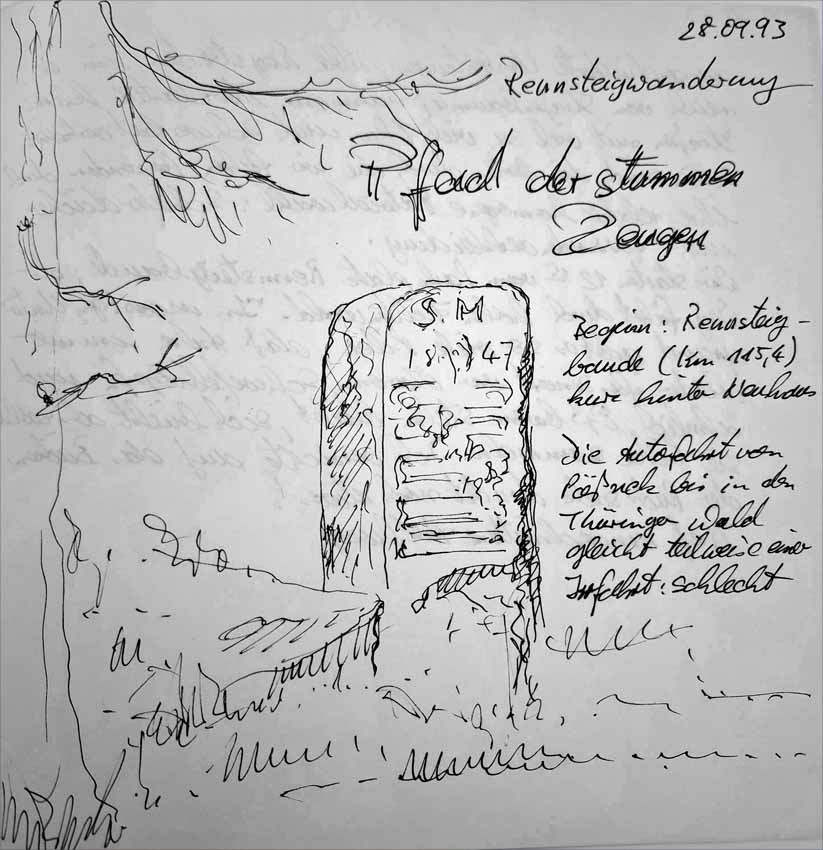 28.09.93
Rennsteigwanderung
Pfad der stummen
Zeugen
S M
18 47
Beginn: Rennsteig-
baude (km 115,4)
kurz hinter Neuhaus
Die Autofahrt von
Pößneck bis in den
Thüringer Wald
gleicht teilweise einer
Irrfahrt: schlecht